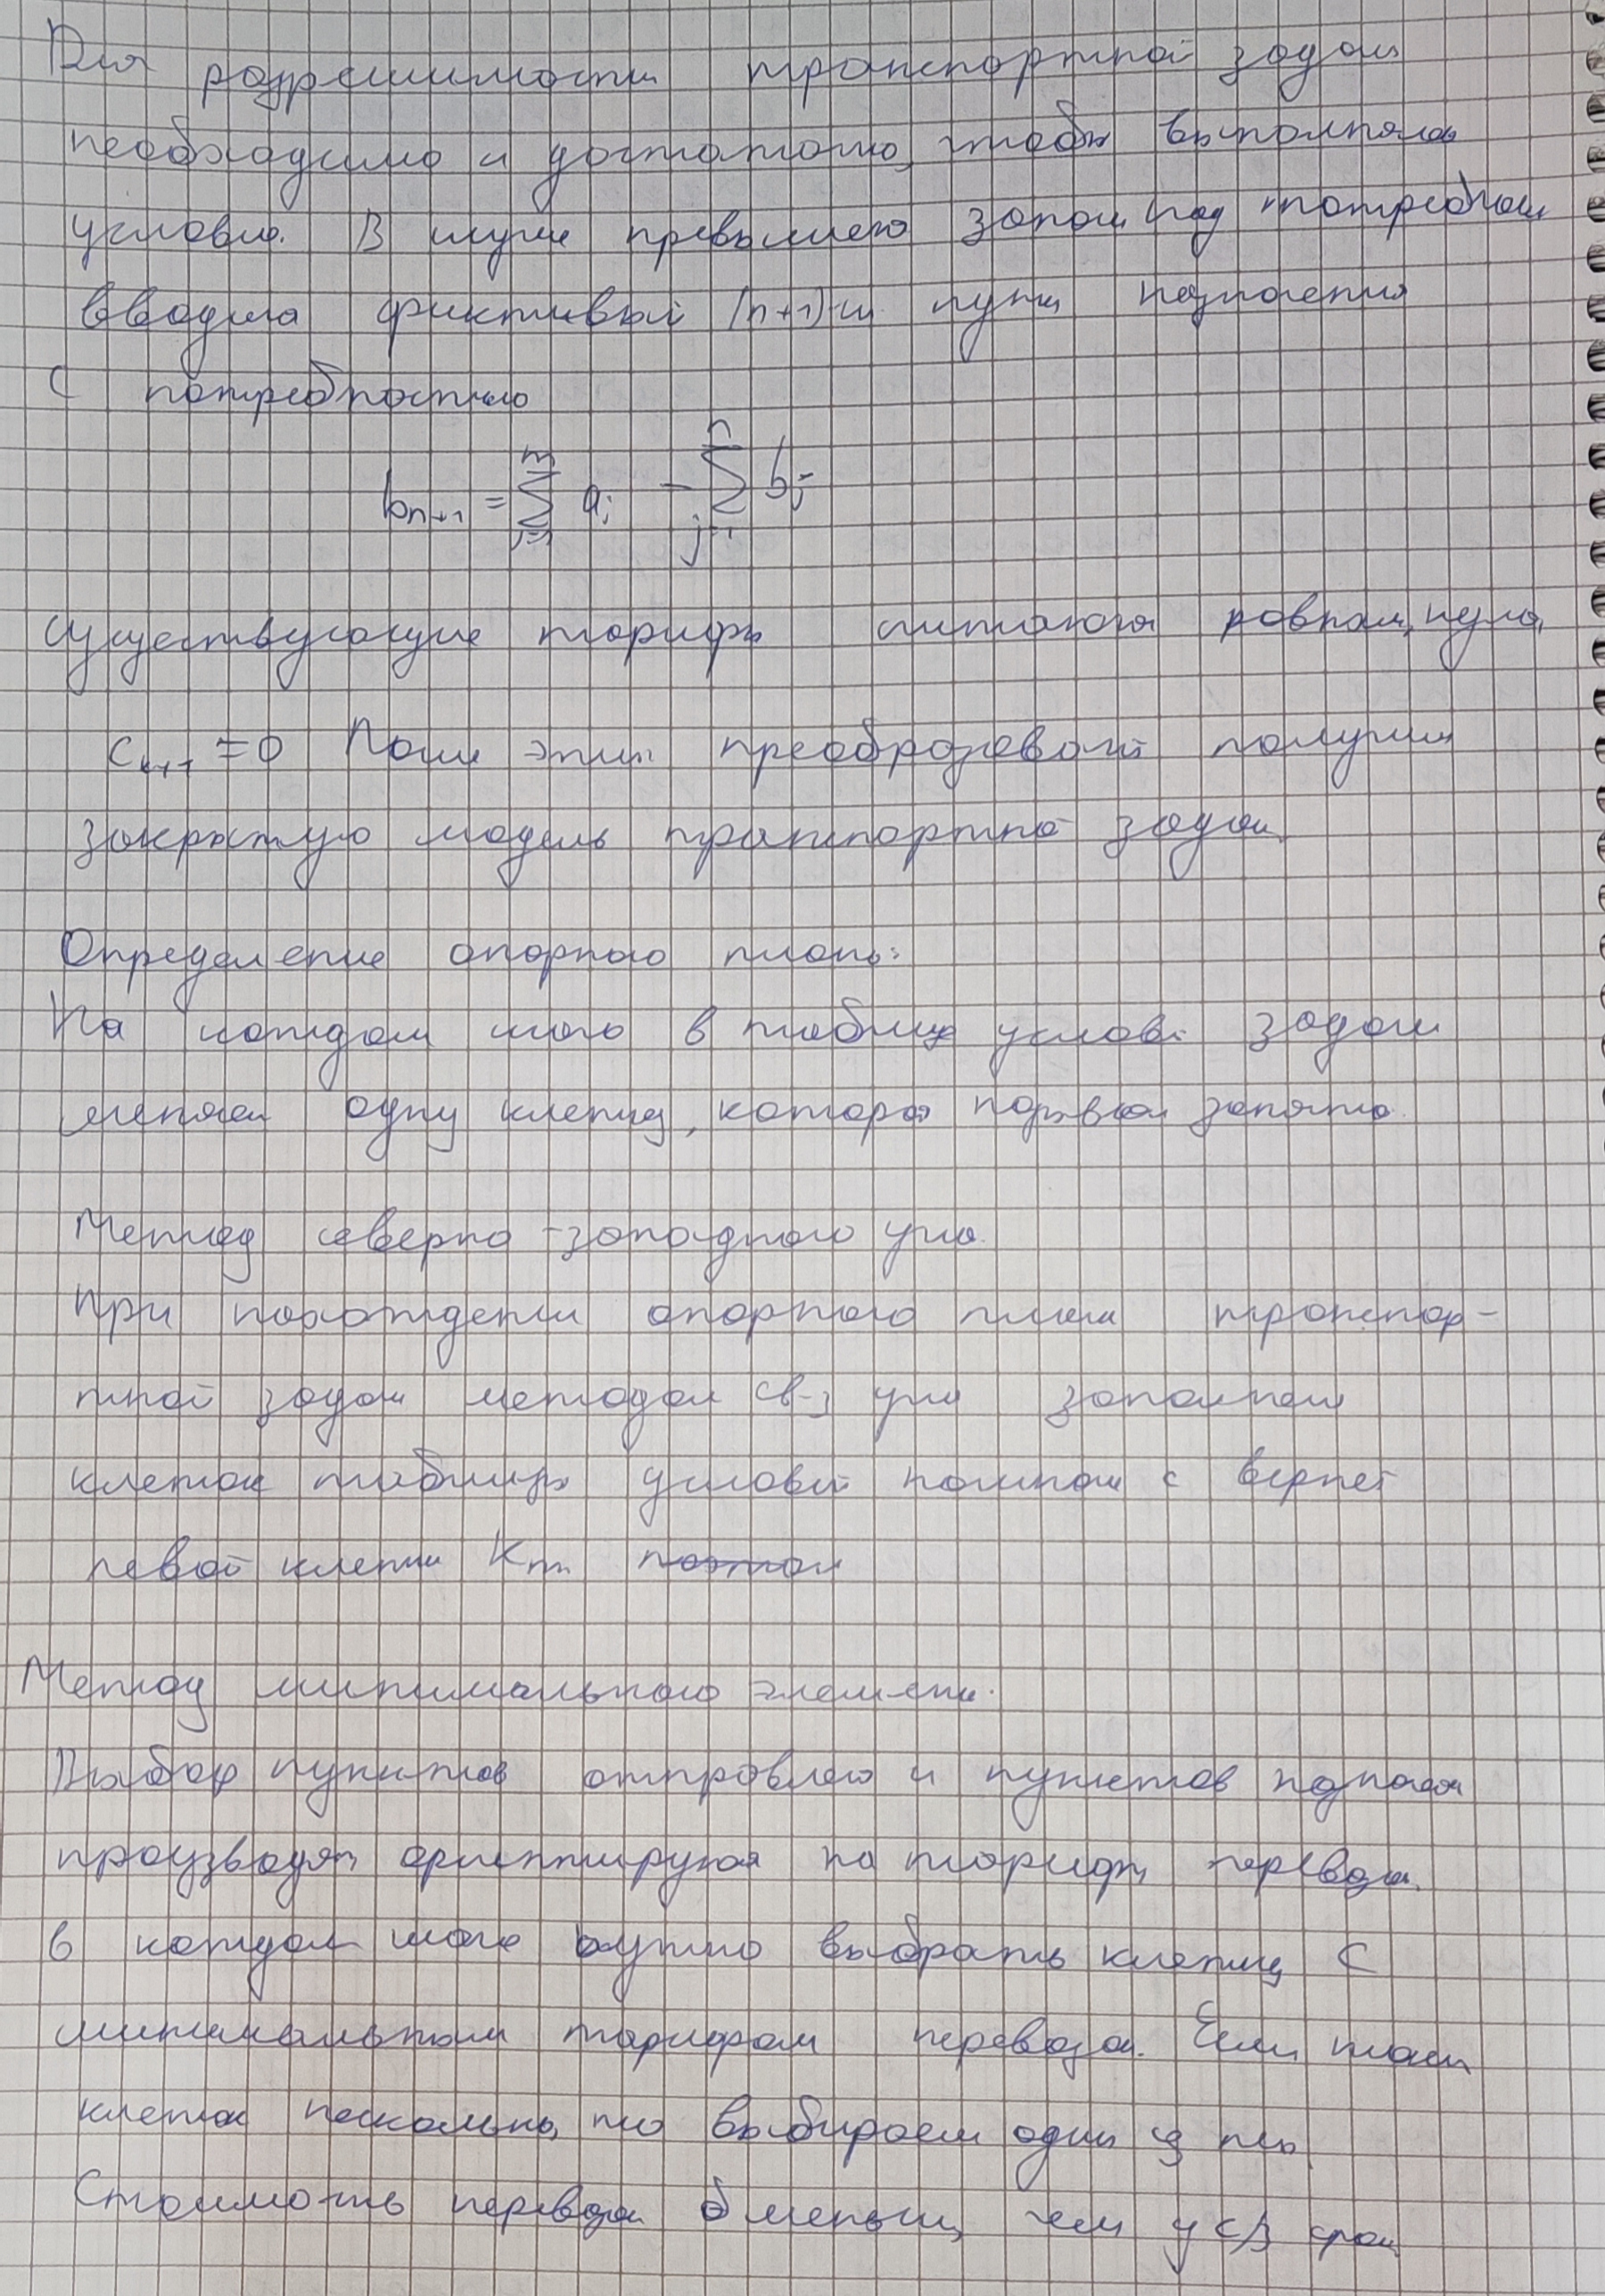 Для разрешимости транспортной задачи
необходимо и достаточно, чтобы выполнялось
условие. В случае превышения запасов над потребностями
вводится фиктивный (n+1)-й пункт назначения
с потребностью
b_{n+1} = \sum_{i=1}^{m} a_i - \sum_{j=1}^{n} b_j
существующие тарифы считаются равными нулю,
c_{n+1} = 0 После этих преобразований получим
закрытую модель транспортной задачи.
Определение опорного плана:
На каждом шаге в таблице условий задачи
меняем одну клетку, которая назыв занято.
Метод северно-западного угла.
При нахождении опорного плана транспор-
тной задачи методом св-з угла заполнение
клеток таблицы условий начинаем с верхней
левой клетки
Метод минимального элемента.
Выбор пунктов отправления и пунктов назначения
производят ориентируясь на тарифы перевозки.
в каждом шаге нужно выбрать клетку с
минимальным тарифом перевозки. Если таких
клеток несколько, то выбираем один из них
Стоимость перевозки меньше, чем у